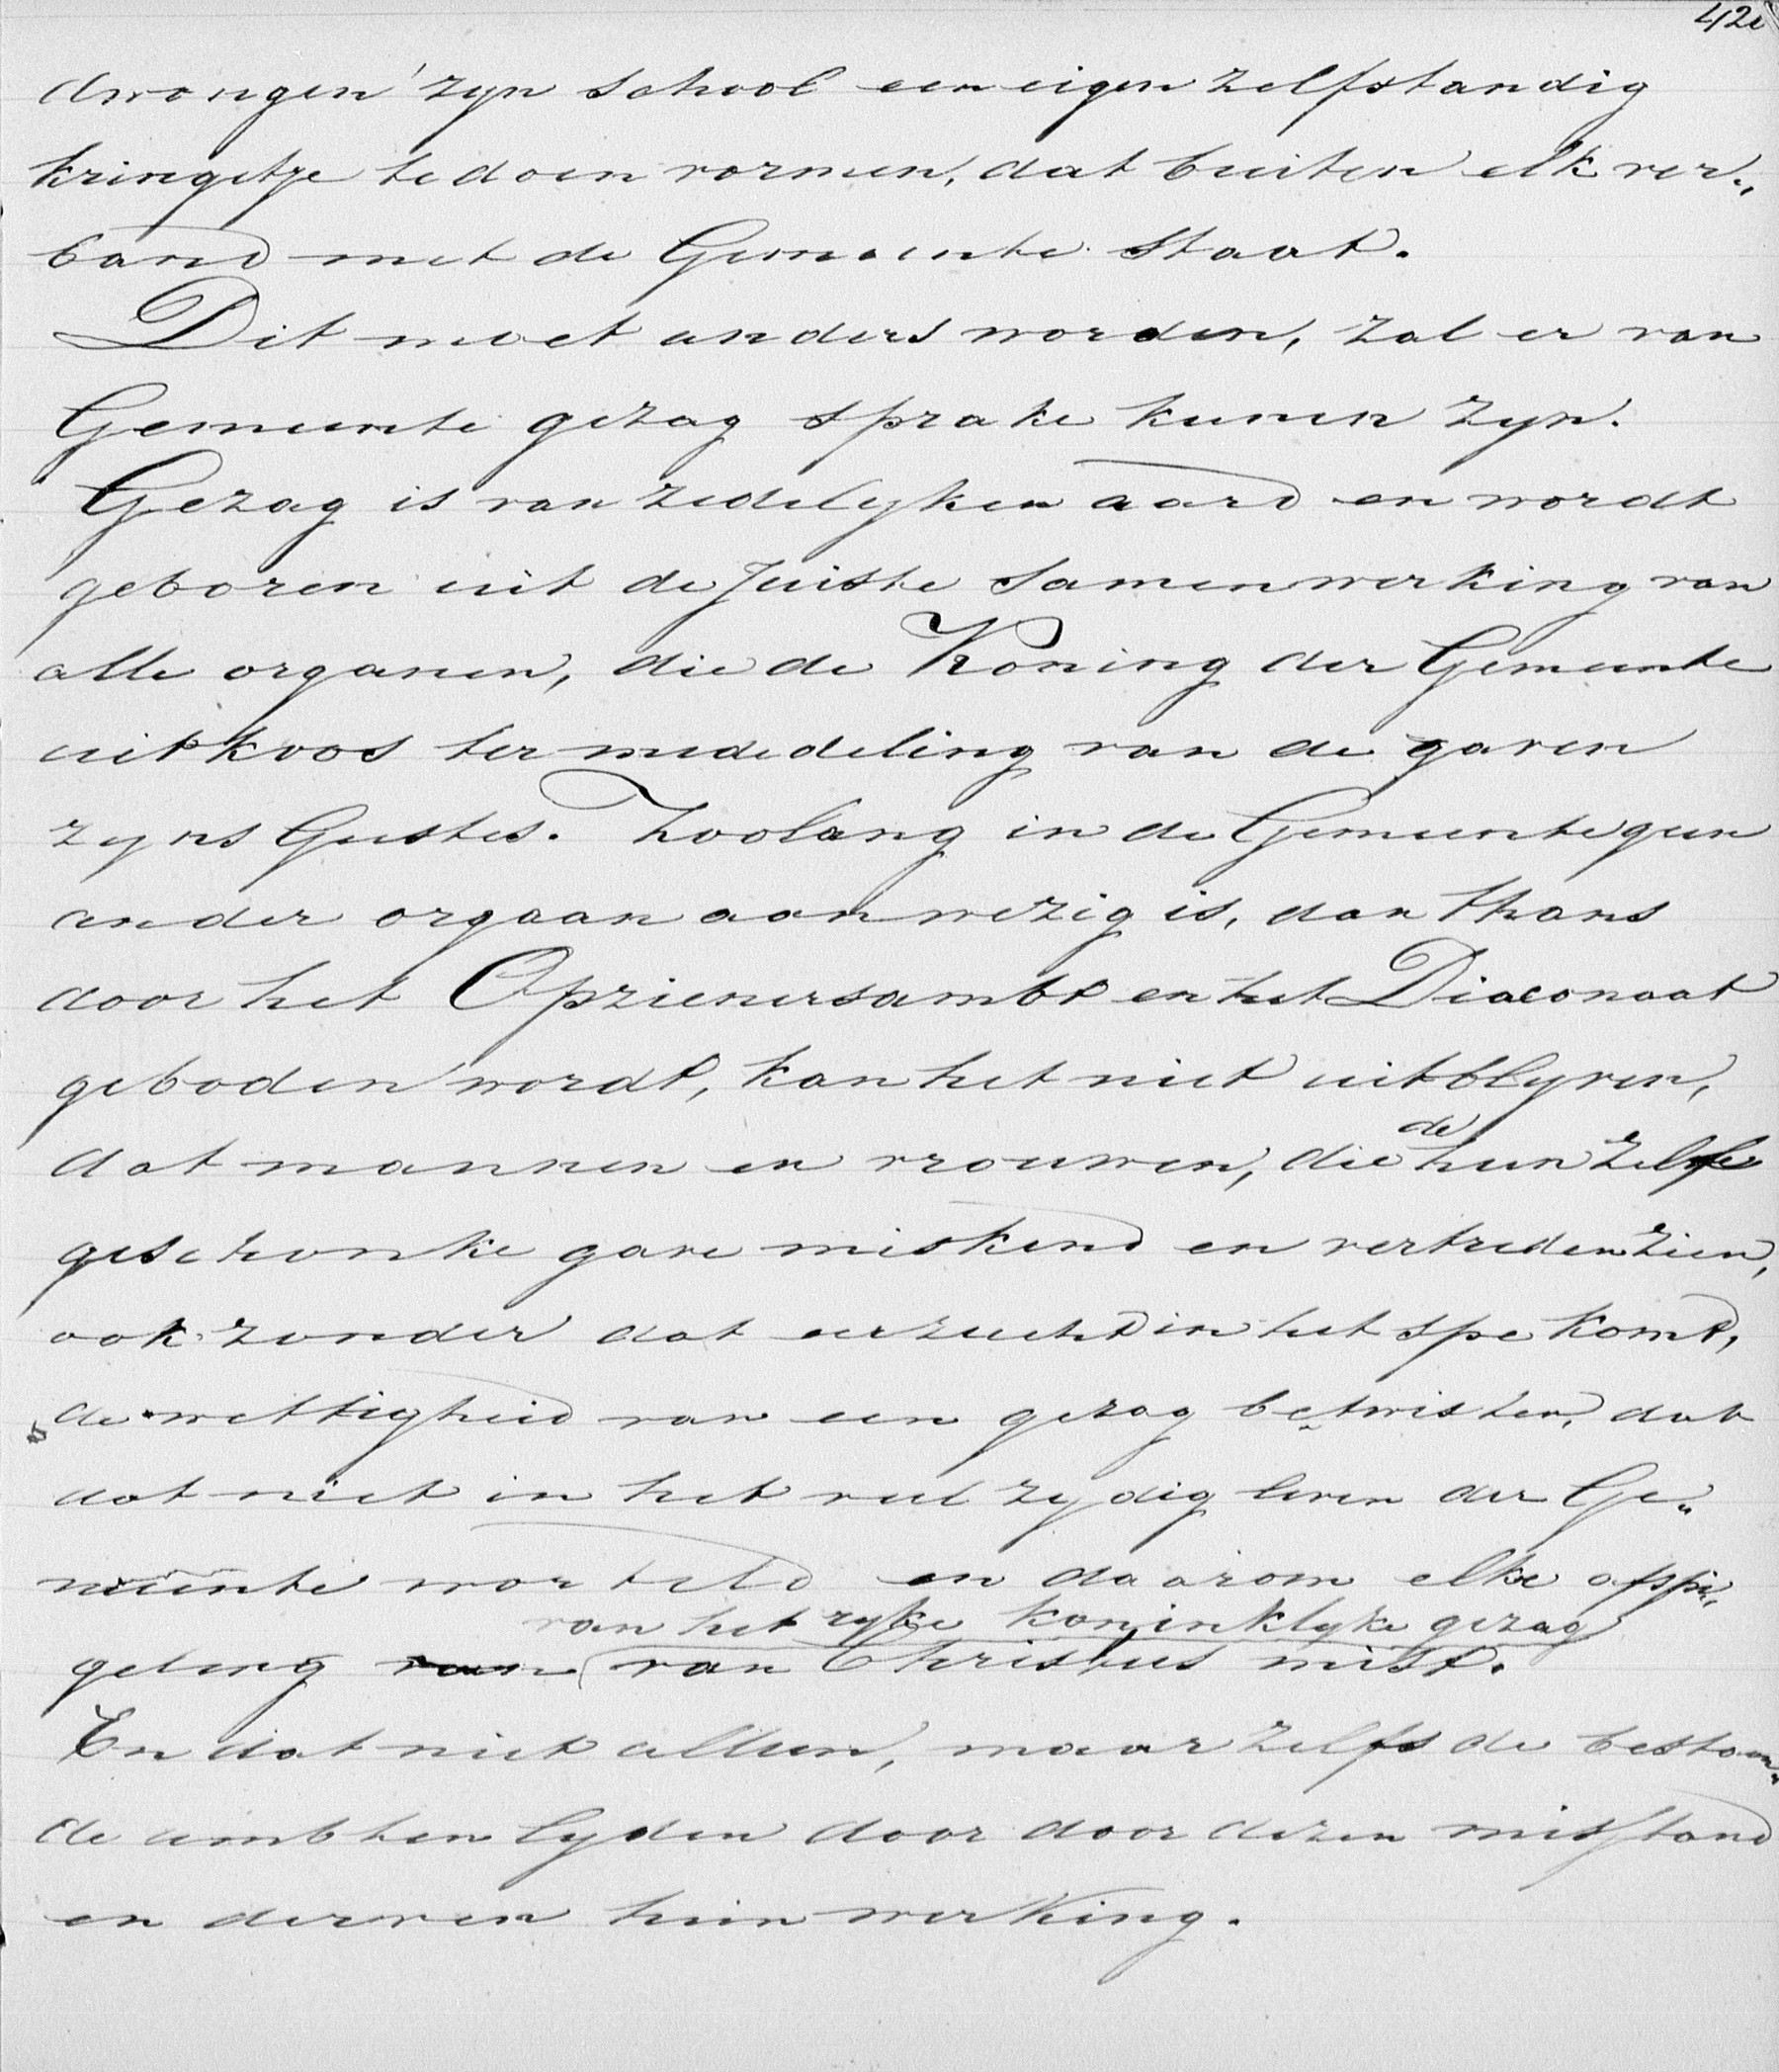 42e
dwongen zyn school een eigen zelfstandig
kringetje te doen vormen, dat buiten elk ver„
band met de Gemeente staat.
Dit moet anders worden, zal er van
Gemeente gezag sprake kunen zyn.
Gezag is van zedelyken aard en wordt
geboren uit de juiste samenwerking van
alle organen, die de Koning der Gemeente
uitkoos ter mededeling van de gaven
zyns Geestes. Zoolang in de Gemeente geen
ander orgaan aanwezig is, dan thans
door het Opzienersambt en het Diaconaat
geboden wordt, kan het niet uitblyven,
de
dat mannen en vrouwen, die hun zelfe
geschonke gave miskend en vertreden zien,
ook zonder dat eerzucht in het spe komt,
de wettigheid van een gezag betwisten, dat
dat niet in het veelzydig leven der Ge„
meente worteld en daarom elke afspie„
van het ryke koninklyke gezag
geling van van Christus mist.
En dat niet alleen, maar zelfs de bestaan„
de ambten lyden door door dezen misstand
en derven hun werking.